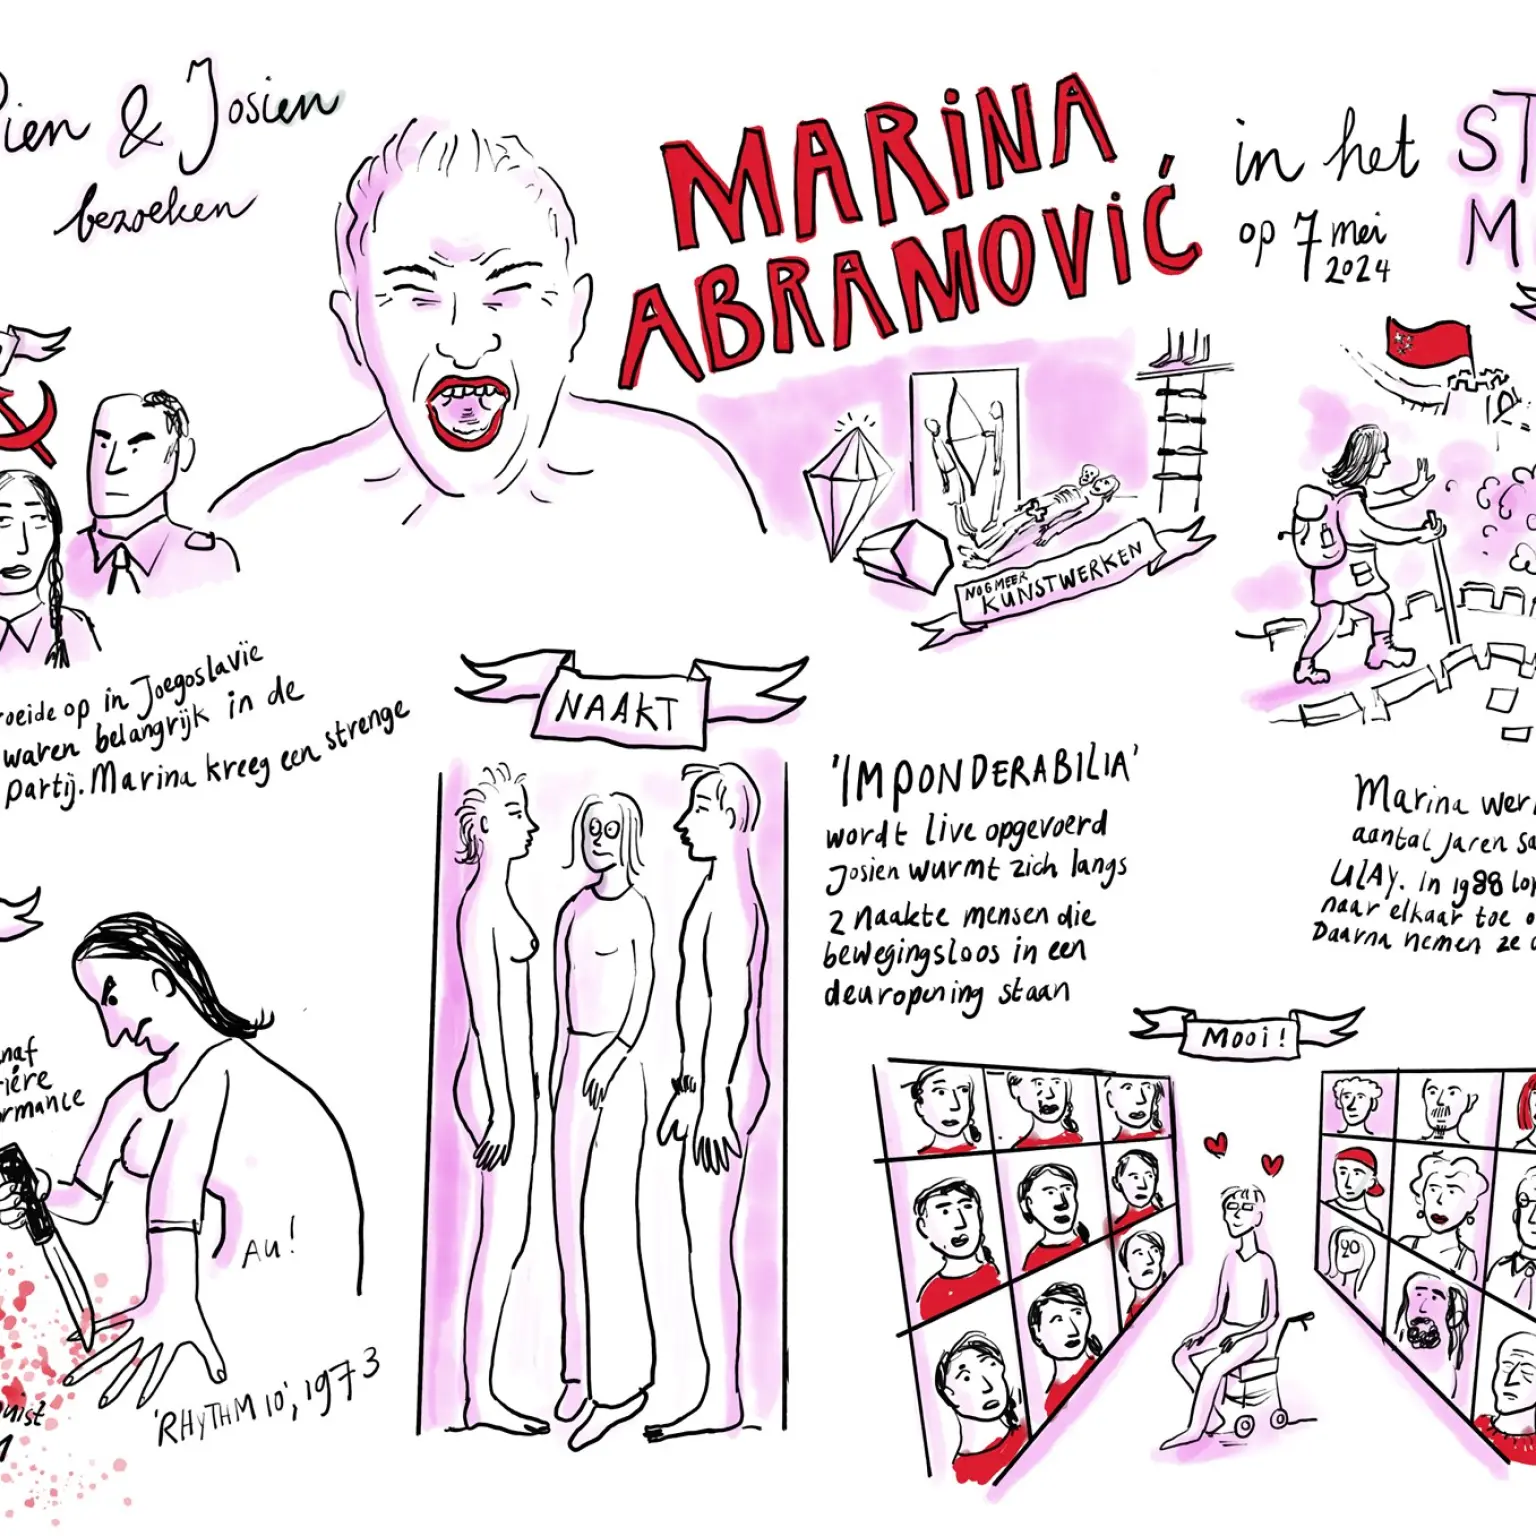 & Josien
bezoeken
MARINA
ABRAMOVIĆ
in het
op 7 mei
2024
NOG MEER
KUNSTWERKEN
op in Joegoslavië
waren belangrijk in de
partij. Marina kreeg een strenge
NAAKT
'IMPONDERABILIA'
wordt live opgevoerd
Josien wurmt zich langs
2 naakte mensen die
bewegingsloos in een
deuropening staan
Marina
aantal jaren
ULAY. In 1988
naar elkaar toe
Daarna nemen ze
AU!
'RHYTHM 10', 1973
MOOI!